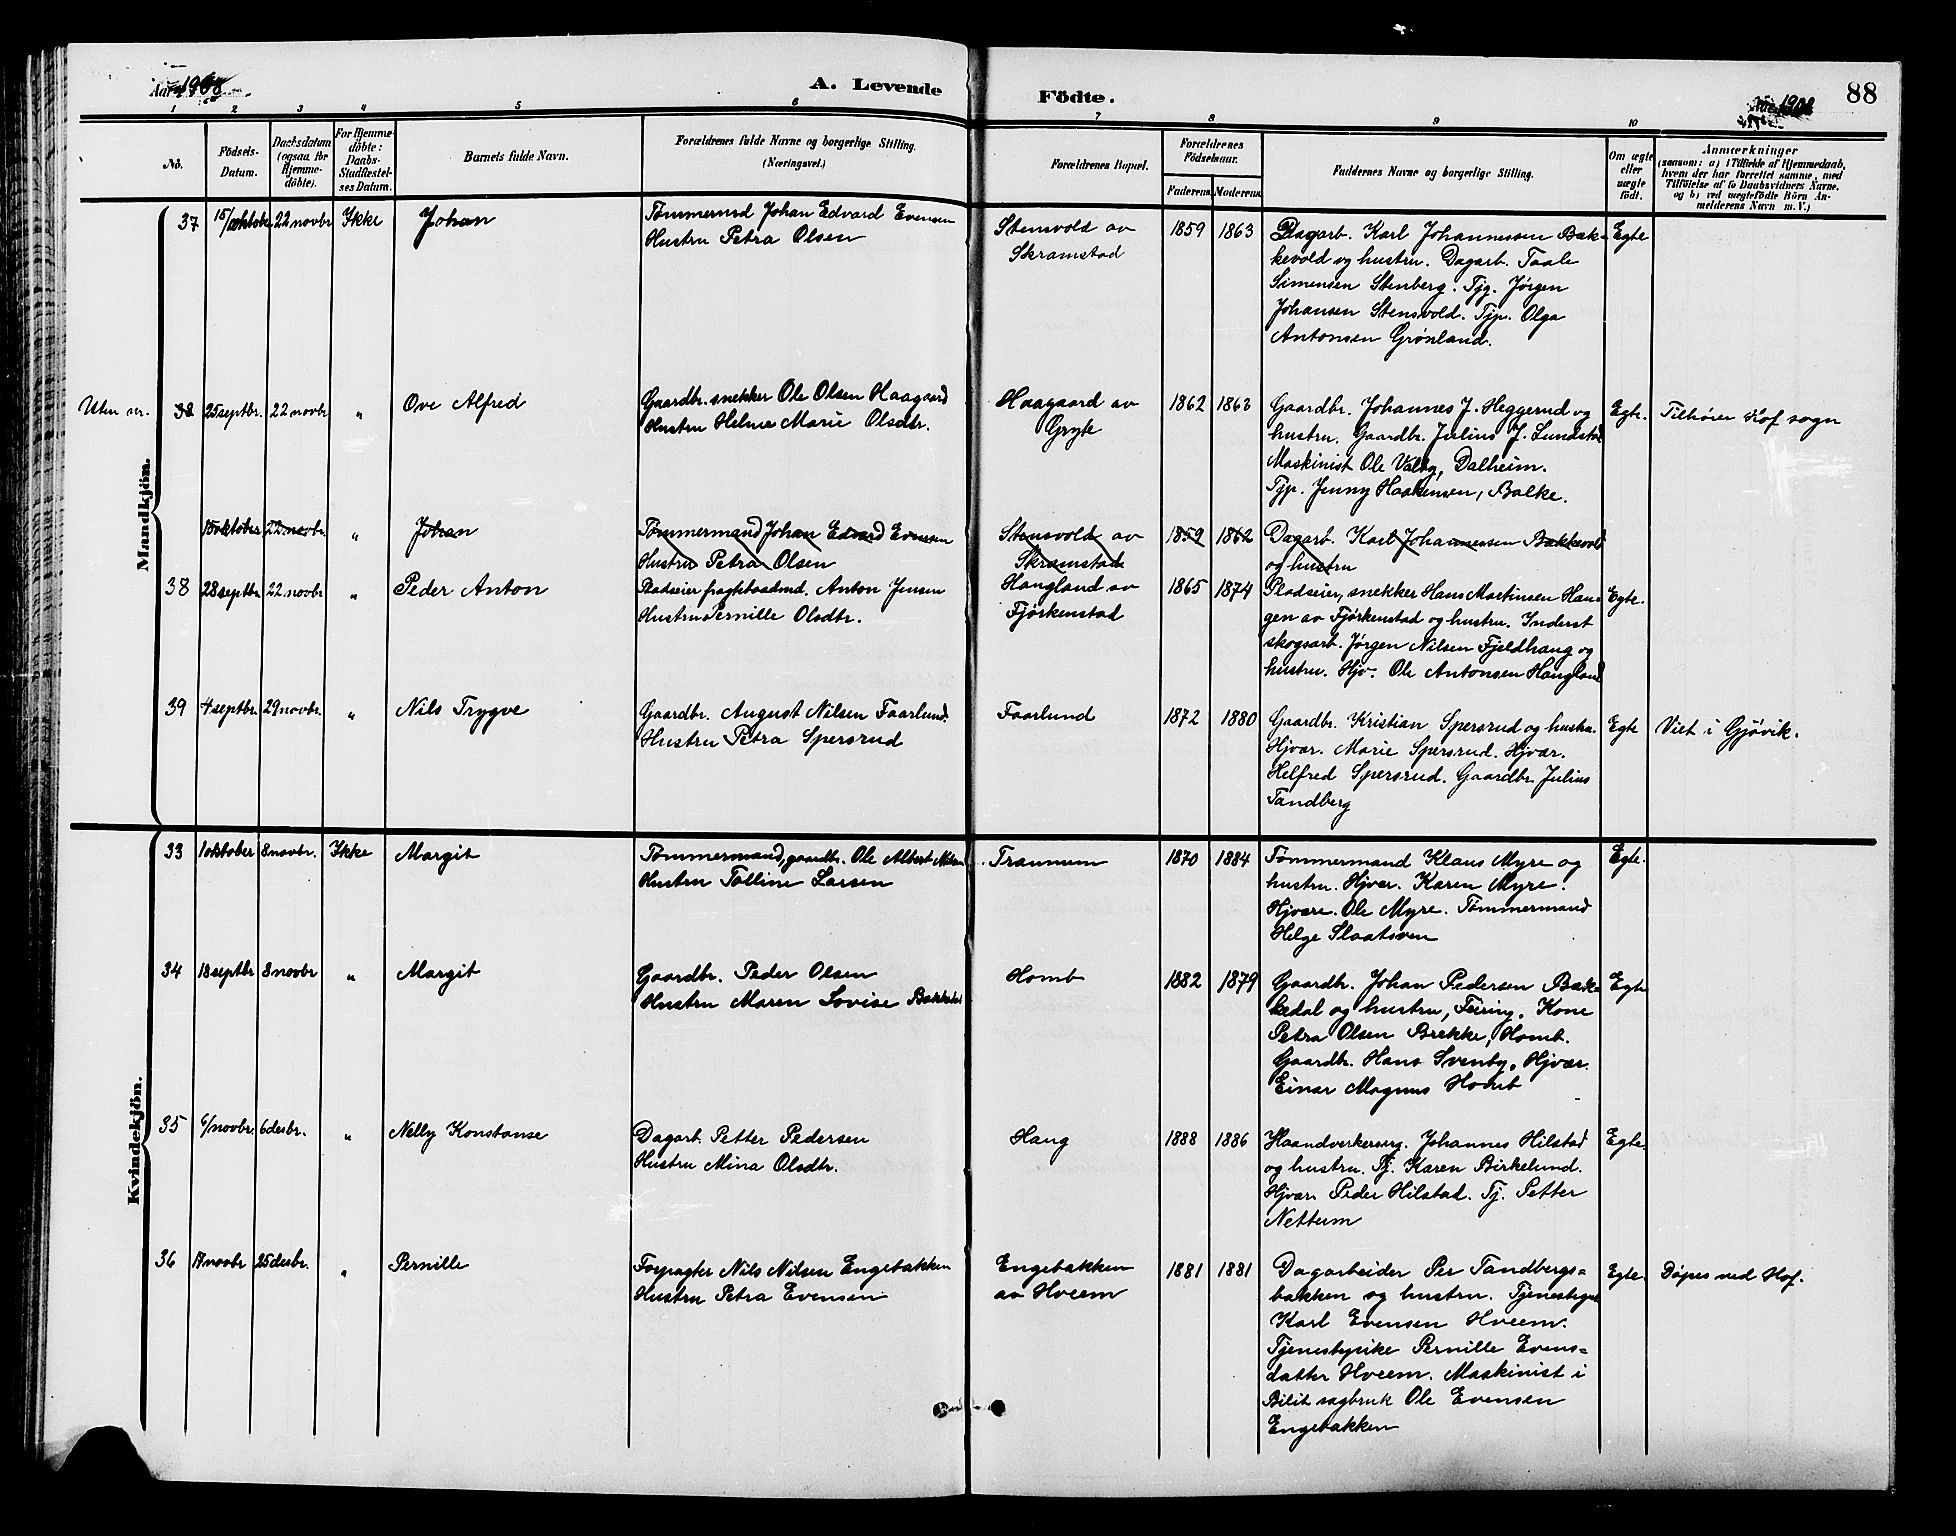 Aar 1908
A. Levende Födte.
1908
88
1 2 3 4 5 6 7 8 9 10
No.
Födsels-
Datum.
Daabsdatum
(ogsaa for
Hjemme-
döbte).
For Hjemme-
döbte:
Daabs-
Stadfæstel-
ses Datum.
Barnets fulde Navn.
Forældrenes fulde Navne og borgerlige Stilling.
(Næringsvei.)
Forældrenes Bopæl.
Forældrenes
Födselsaar.
Faderens. Moderens.
Faddernes Navne og borgerlige Stilling.
Om ægte
eller
uægte
födt.
Anmærkninger
(saasom: a) i Tilfælde af Hjemmedaab,
hvem der har forrettet samme, med
Tilföielse af to Daabsvidners Navne,
og b) ved uægtefödte Börn An-
melderens Navn m. V.)
Mandkjön.
37 15/oktober 22 novbr Ikke Johan
Tømmermd Johan Edvard Evensen
Hustru Petra Olsen
Stensvold av
Skramstad
1859 1863
Dagarb. Karl Johannessen Bæk-
kevold og hustru. Dagarb. Taale
Simensen Stenberg. Tjg. Jörgen
Johansen Stensvold. Tjp. Olga
Antonsen Grønland.
Egte
Uten nr. 38 25 septbr. 22 novbr " Ove Alfred
Gaardbr. snekker Ole Olsen Haagaard
Hustru Helme Marie Olsdtr.
Haagaard av
Gryte
1862 1863
Gaardbr. Johannes J. Heggerud og
hustru. Gaardbr. Julius J. Lundstad
Maskinist Ole Valby, Dalheim.
Tjp. Jenny Haakensen, Balke.
Egte.
Tilhører Hof sogn
15 oktober 22 novbr. " Johan
Tømmermand Johan Edvard Evensen
Hustru Petra Olsen
Stensvold av
Skramstad
1859 1862
Dagarb. Karl Johannessen Bakkevold
og hustru
38 28 septbr 22 novbr " Peder Anton
Pladseier fragtbaadmd. Anton Jensen
Hustru Pernille Olsdtr.
Haugland av
Fjörkenstad
1865 1874
Pladseier, snekker Hans Martinsen Hau-
gen av Fjörkenstad og hustru. Inderst
skogsarb. Jørgen Nilsen Fjeldhaug og
hustru. Hjv. Ole Antonsen Haugland
Egte.
39 4 septbr. 29 novbr. " Nils Trygve
Gaardbr. August Nilsen Faarlund.
Hustru Petra Spersrud
Faarlund
1872 1880
Gaardbr. Kristian Spersrud og hustru.
Hjvær. Marie Spersrud. Hjvær.
Helfred Spersrud. Gaardbr. Julius
Tandberg
Egte
Viet i Gjøvik.
Kvindekjön.
33 1 oktober 8 novbr. Ikke Margit
Tømmermand, gaardbr. Ole Albert Nilsen
Hustru Tolline Larsen
Tranum
1870 1884
Tømmermand Klaus Myre og
hustru. Hjvær. Karen Myre.
Hjvære. Ole Myre. Tømmermand
Helge Slaatsven
Egte.
34 18 septbr 8 novbr " Margit
Gaardbr. Peder Olsen
Hustru Maren Lovise Bækkedal
Homb
1882 1879
Gaardbr. Johan Pedersen Bæk-
kedal og hustru, Feiring. Kone
Petra Olsen Brekke, Homb.
Gaardbr. Hans Svenby, Hjvær.
Einar Magnus Homb
Egte
35 6/novbr. 6 desbr. " Nelly Konstanse
Dagarb. Petter Pedersen
Hustru Mina Olsdtr.
Haug
1888 1886
Haandverkersvg. Johannes Hilstad
og hustru. Tj. Karen Birkelund.
Hjvær Peder Hilstad. Tj. Petter
Nettum
Egte.
36 17 novbr 25 desbr. " Pernille
Forpagter Nils Nilsen Engebakken
Hustru Petra Evensen
Engebakken
av Hveem
1881 1881
Dagarbeider Per Tandbergs-
bakken og hustru. Tjenestegut
Karl Evensen Hveem.
Tjenestepike Pernille Evens-
datter Hveem. Maskinist i
Bilit sagbruk Ole Evensen
Engebakken
Egte.
Döpes ved Hof.